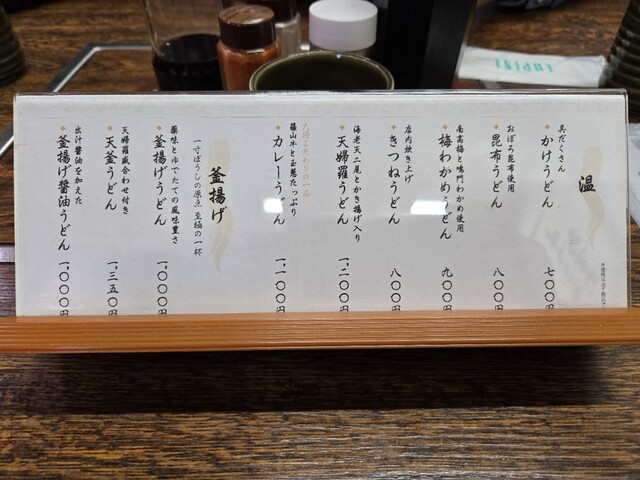 温
具だくさん
かけうどん 七〇〇円
おぼろ昆布使用
昆布うどん 八〇〇円
南高梅と鳴門わかめ使用
梅わかめうどん 九〇〇円
店内炊き上げ
きつねうどん 八〇〇円
海老天二尾とかき揚げ入り
天婦羅うどん 一、二〇〇円
篠山牛と玉葱たっぷり
カレーうどん 一、一〇〇円
釜揚げ
一寸ぼうしの原点 至極の一杯
薬味とゆでたての風味豊さ
釜揚げうどん 一、〇〇〇円
天婦羅盛合わせ付き
天釜うどん 一、三五〇円
出汁醤油を加えた
釜揚げ醤油うどん 一、〇〇〇円